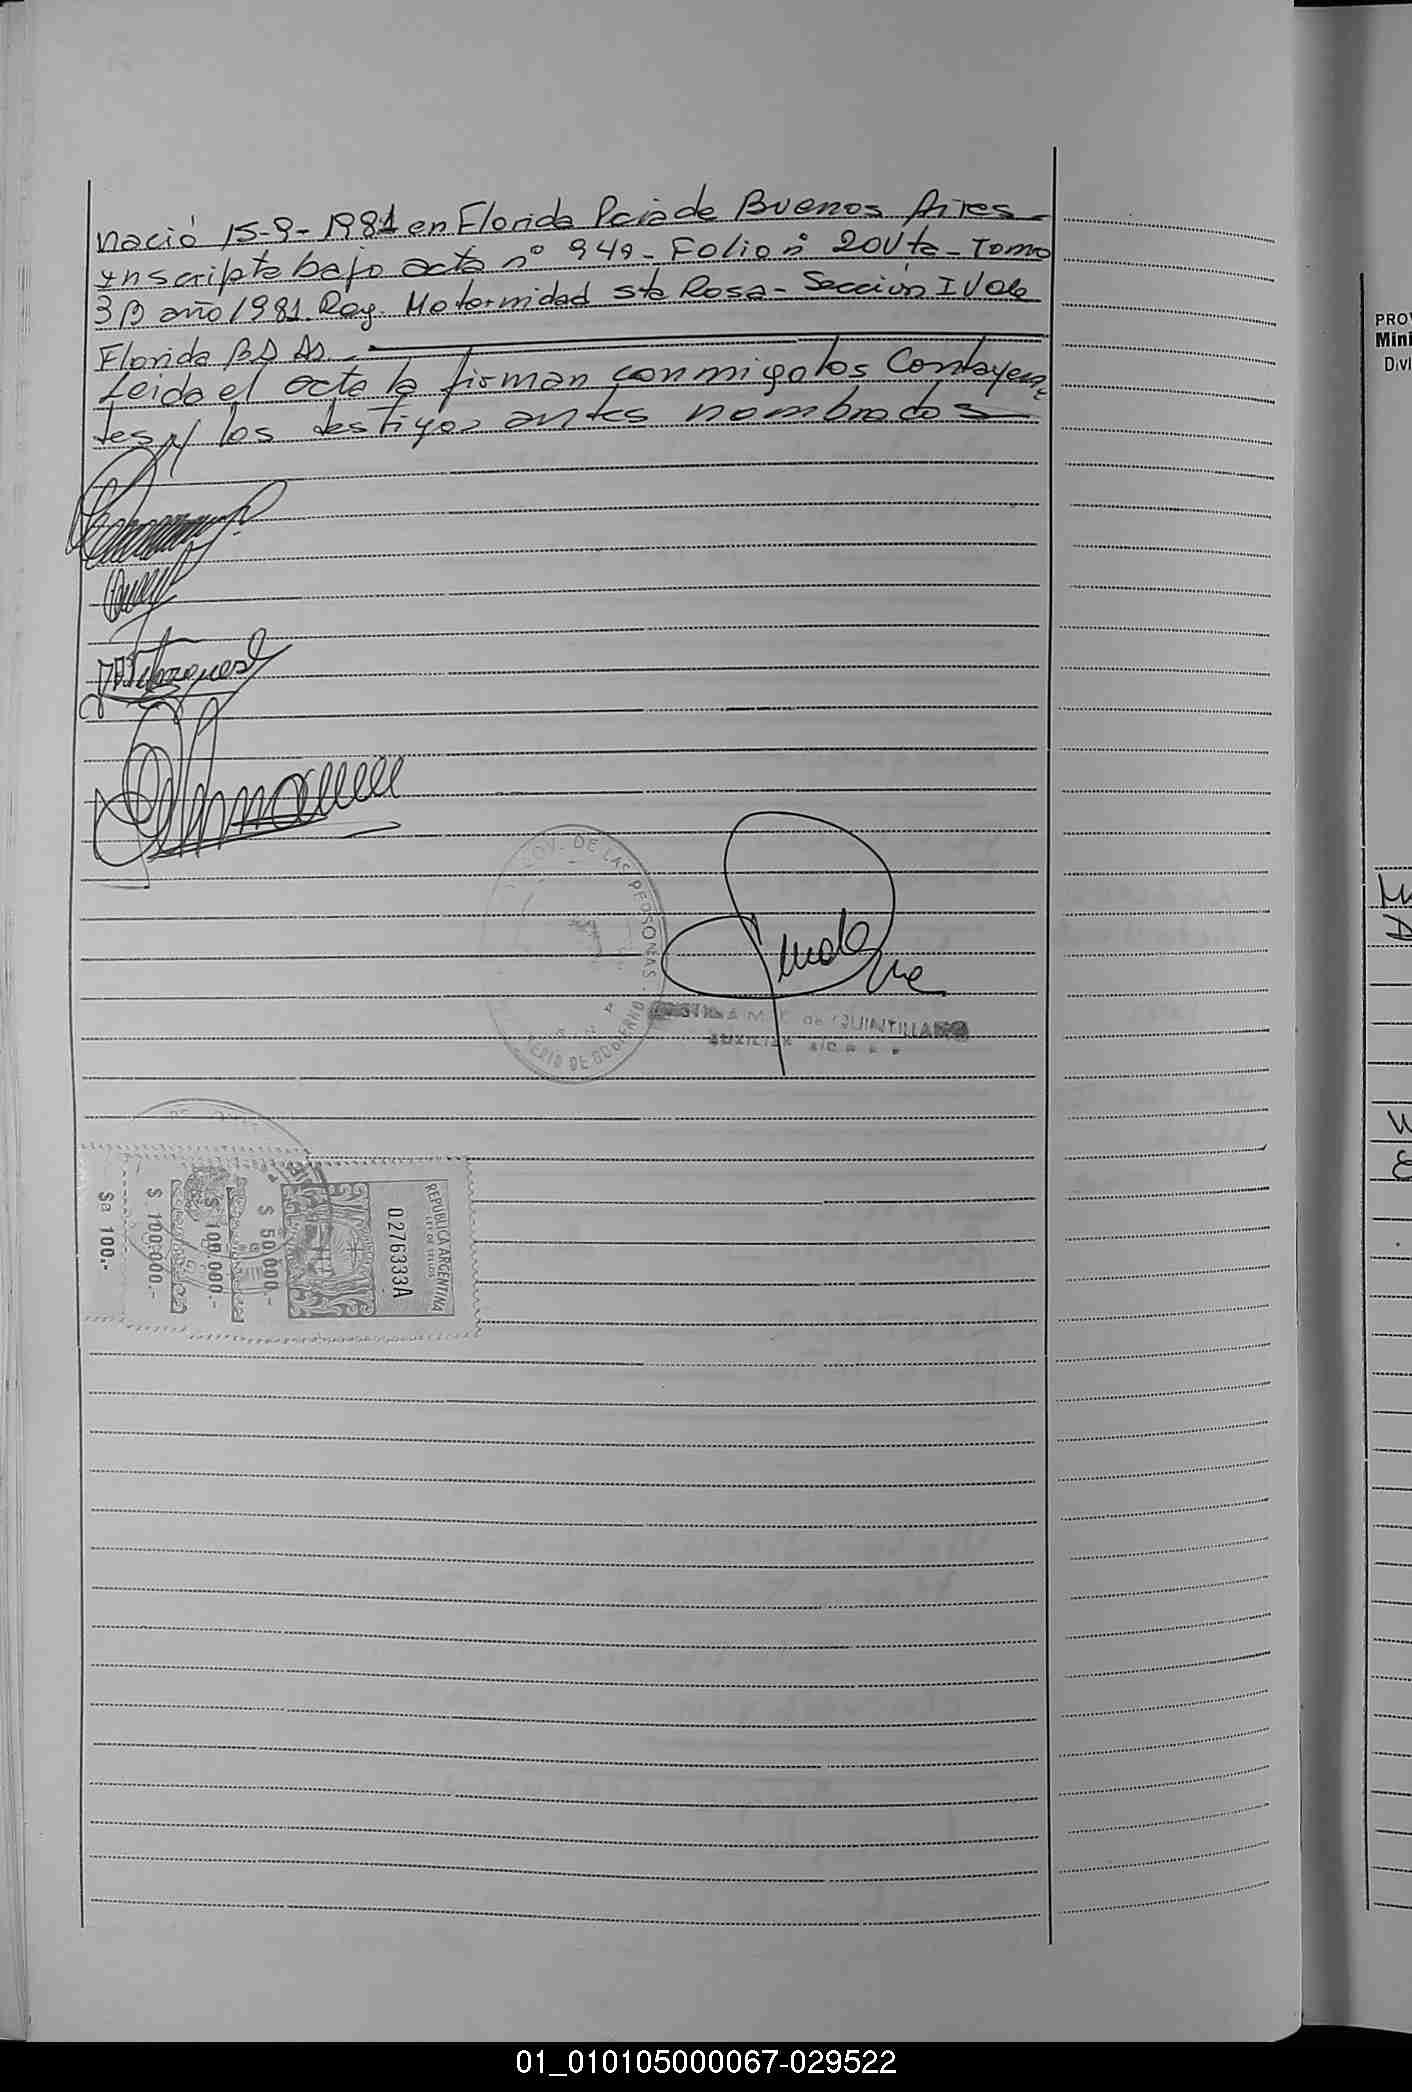 nació 15-9-1981 en Florida Pcia de Buenos Aires-
inscripta bajo acta nº 949- Folio nº 20Vta- Tomo
3B año 1981. Reg. Maternidad Sta Rosa- Sección IV de
Florida Bs As.
Leida el acta la firman conmigo los Contayen-
tes y los testigos antes nombrados
DE LAS PERSONAS
DE GOBIERNO
de QUINTILLANO
AUXILIAR
REPUBLICA ARGENTINA
LEY DE SELLOS
0276333A
$ 50.000.-
$ 100.000.-
$ 100.000.-
$a 100.-
PROV
Mini
Divi
01_010105000067-029522